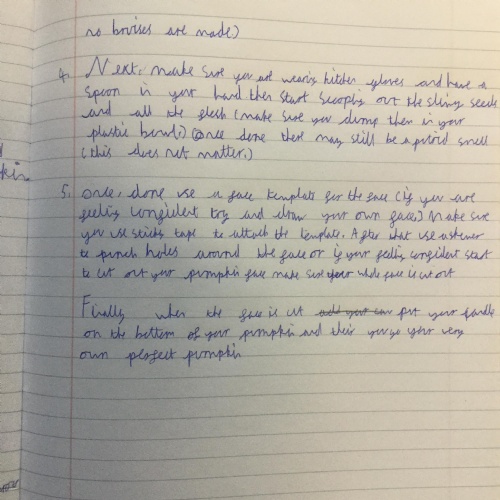 no bruises are made)
4. Next, make sure you are wearing kitchen gloves and have a
spoon in your hand then start scooping out the slimy seeds
and all the flesh (make sure you dump them in your
plastic bowl.) Once done there may still be a putrid smell
(this does not matter.)
5. Once, done use a face template for the face (if you are
feeling confident try and draw your own face.) Make sure
you use sticky tape to attach the template. After that use a skewer
to punch holes around the face or if your feeling confident start
to cut out your pumpkin face make sure your whole face is cut out
Finally when the face is cut put your candle
on the bottom of your pumpkin and their you go your very
own perfect pumpkin